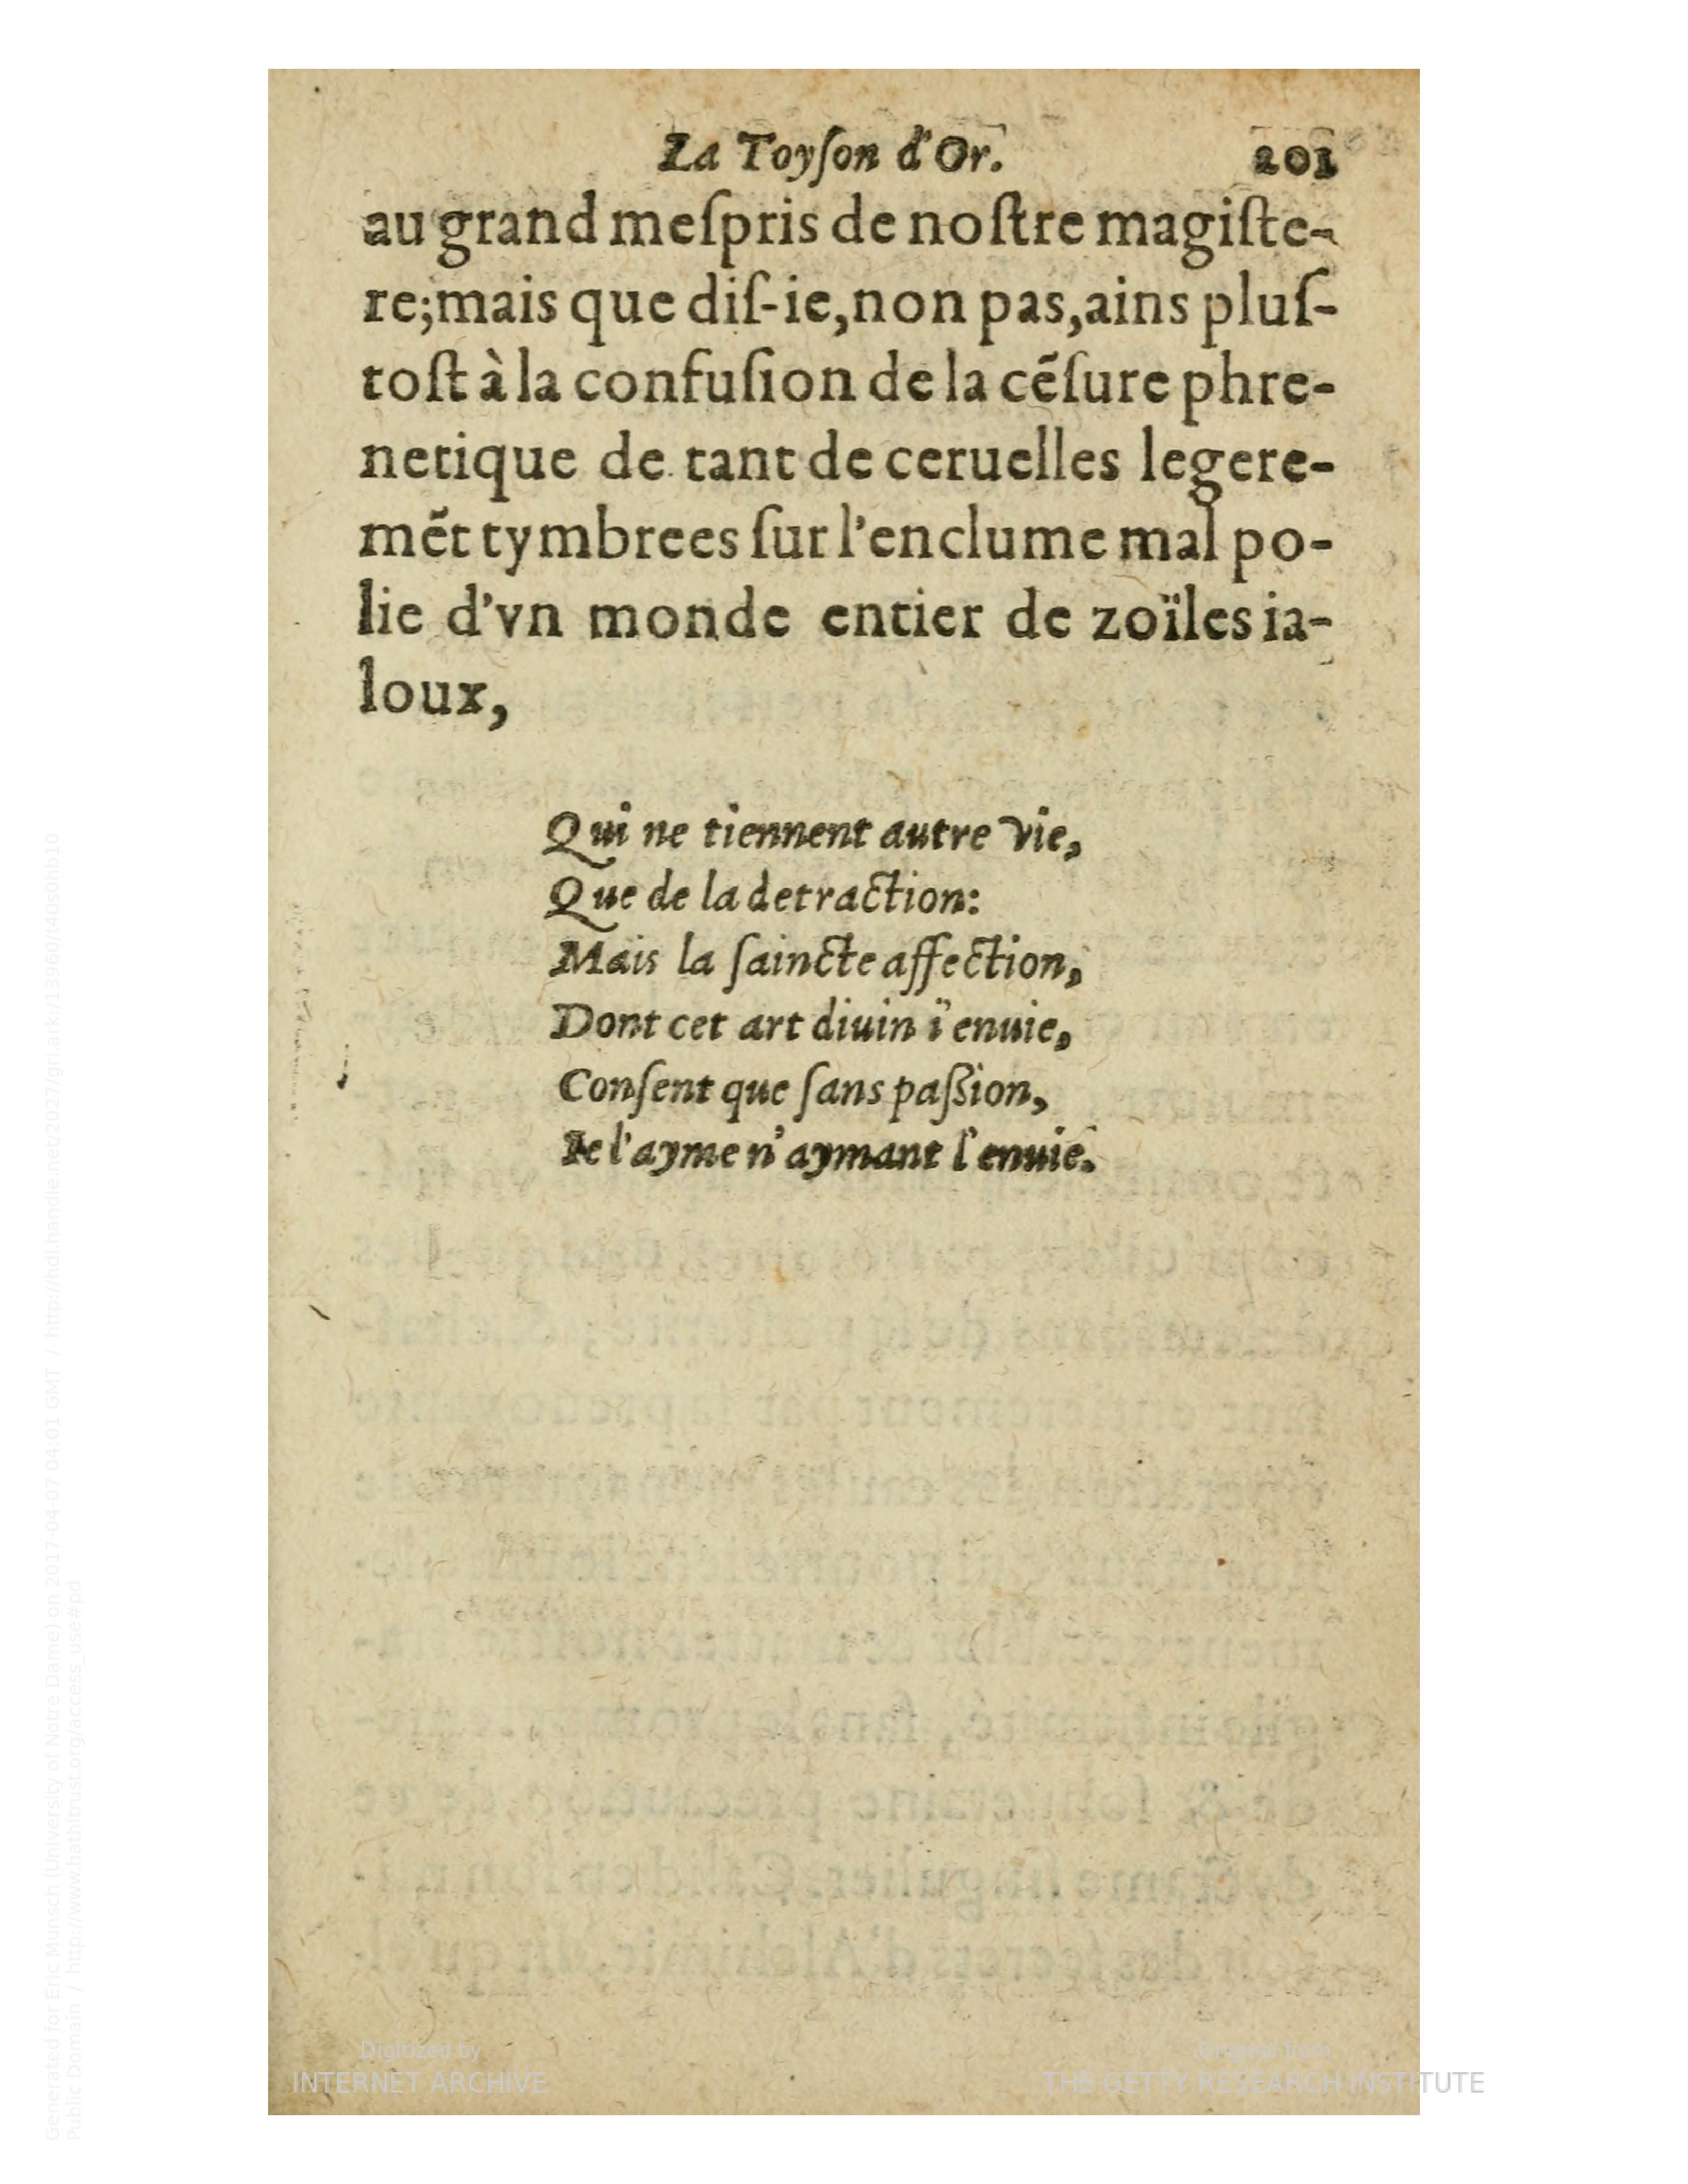 La Toyſon d'Or. 201
au grand meſpris de noſtre magiſte-
re;mais que diſ-ie,non pas,ains pluſ-
toſt à la confuſion de la cẽſure phre-
netique de tant de ceruelles legere-
mẽt tymbrees ſur l'enclume mal po-
lie d'vn monde entier de zoïles ia-
loux,
Qui ne tiennent autre vie,
Que de la detraction:
Mais la ſaincte affection,
Dont cet art diuin i'enuie,
Conſent que ſans paſſion,
Ie l'ayme n'aymant l'enuie.
Generated for Eric Munsch (University of Notre Dame) on 2017-04-07 04:01 GMT / http://hdl.handle.net/2027/gri.ark:/13960/t40s0hb10
Public Domain / http://www.hathitrust.org/access_use#pd
Digitized by
INTERNET ARCHIVE
Original from
THE GETTY RESEARCH INSTITUTE